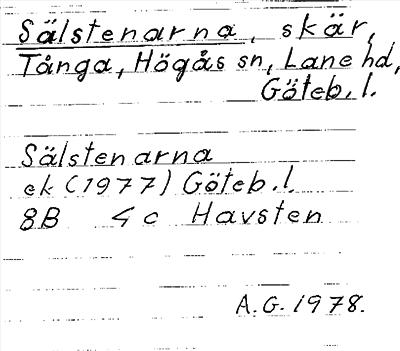 Sälstenarna, skär,
Tånga, Högås sn, Lane hd,
Göteb. l.
Sälstenarna
ek (1977) Göteb. l.
8B 4c Havsten
A.G. 1978.